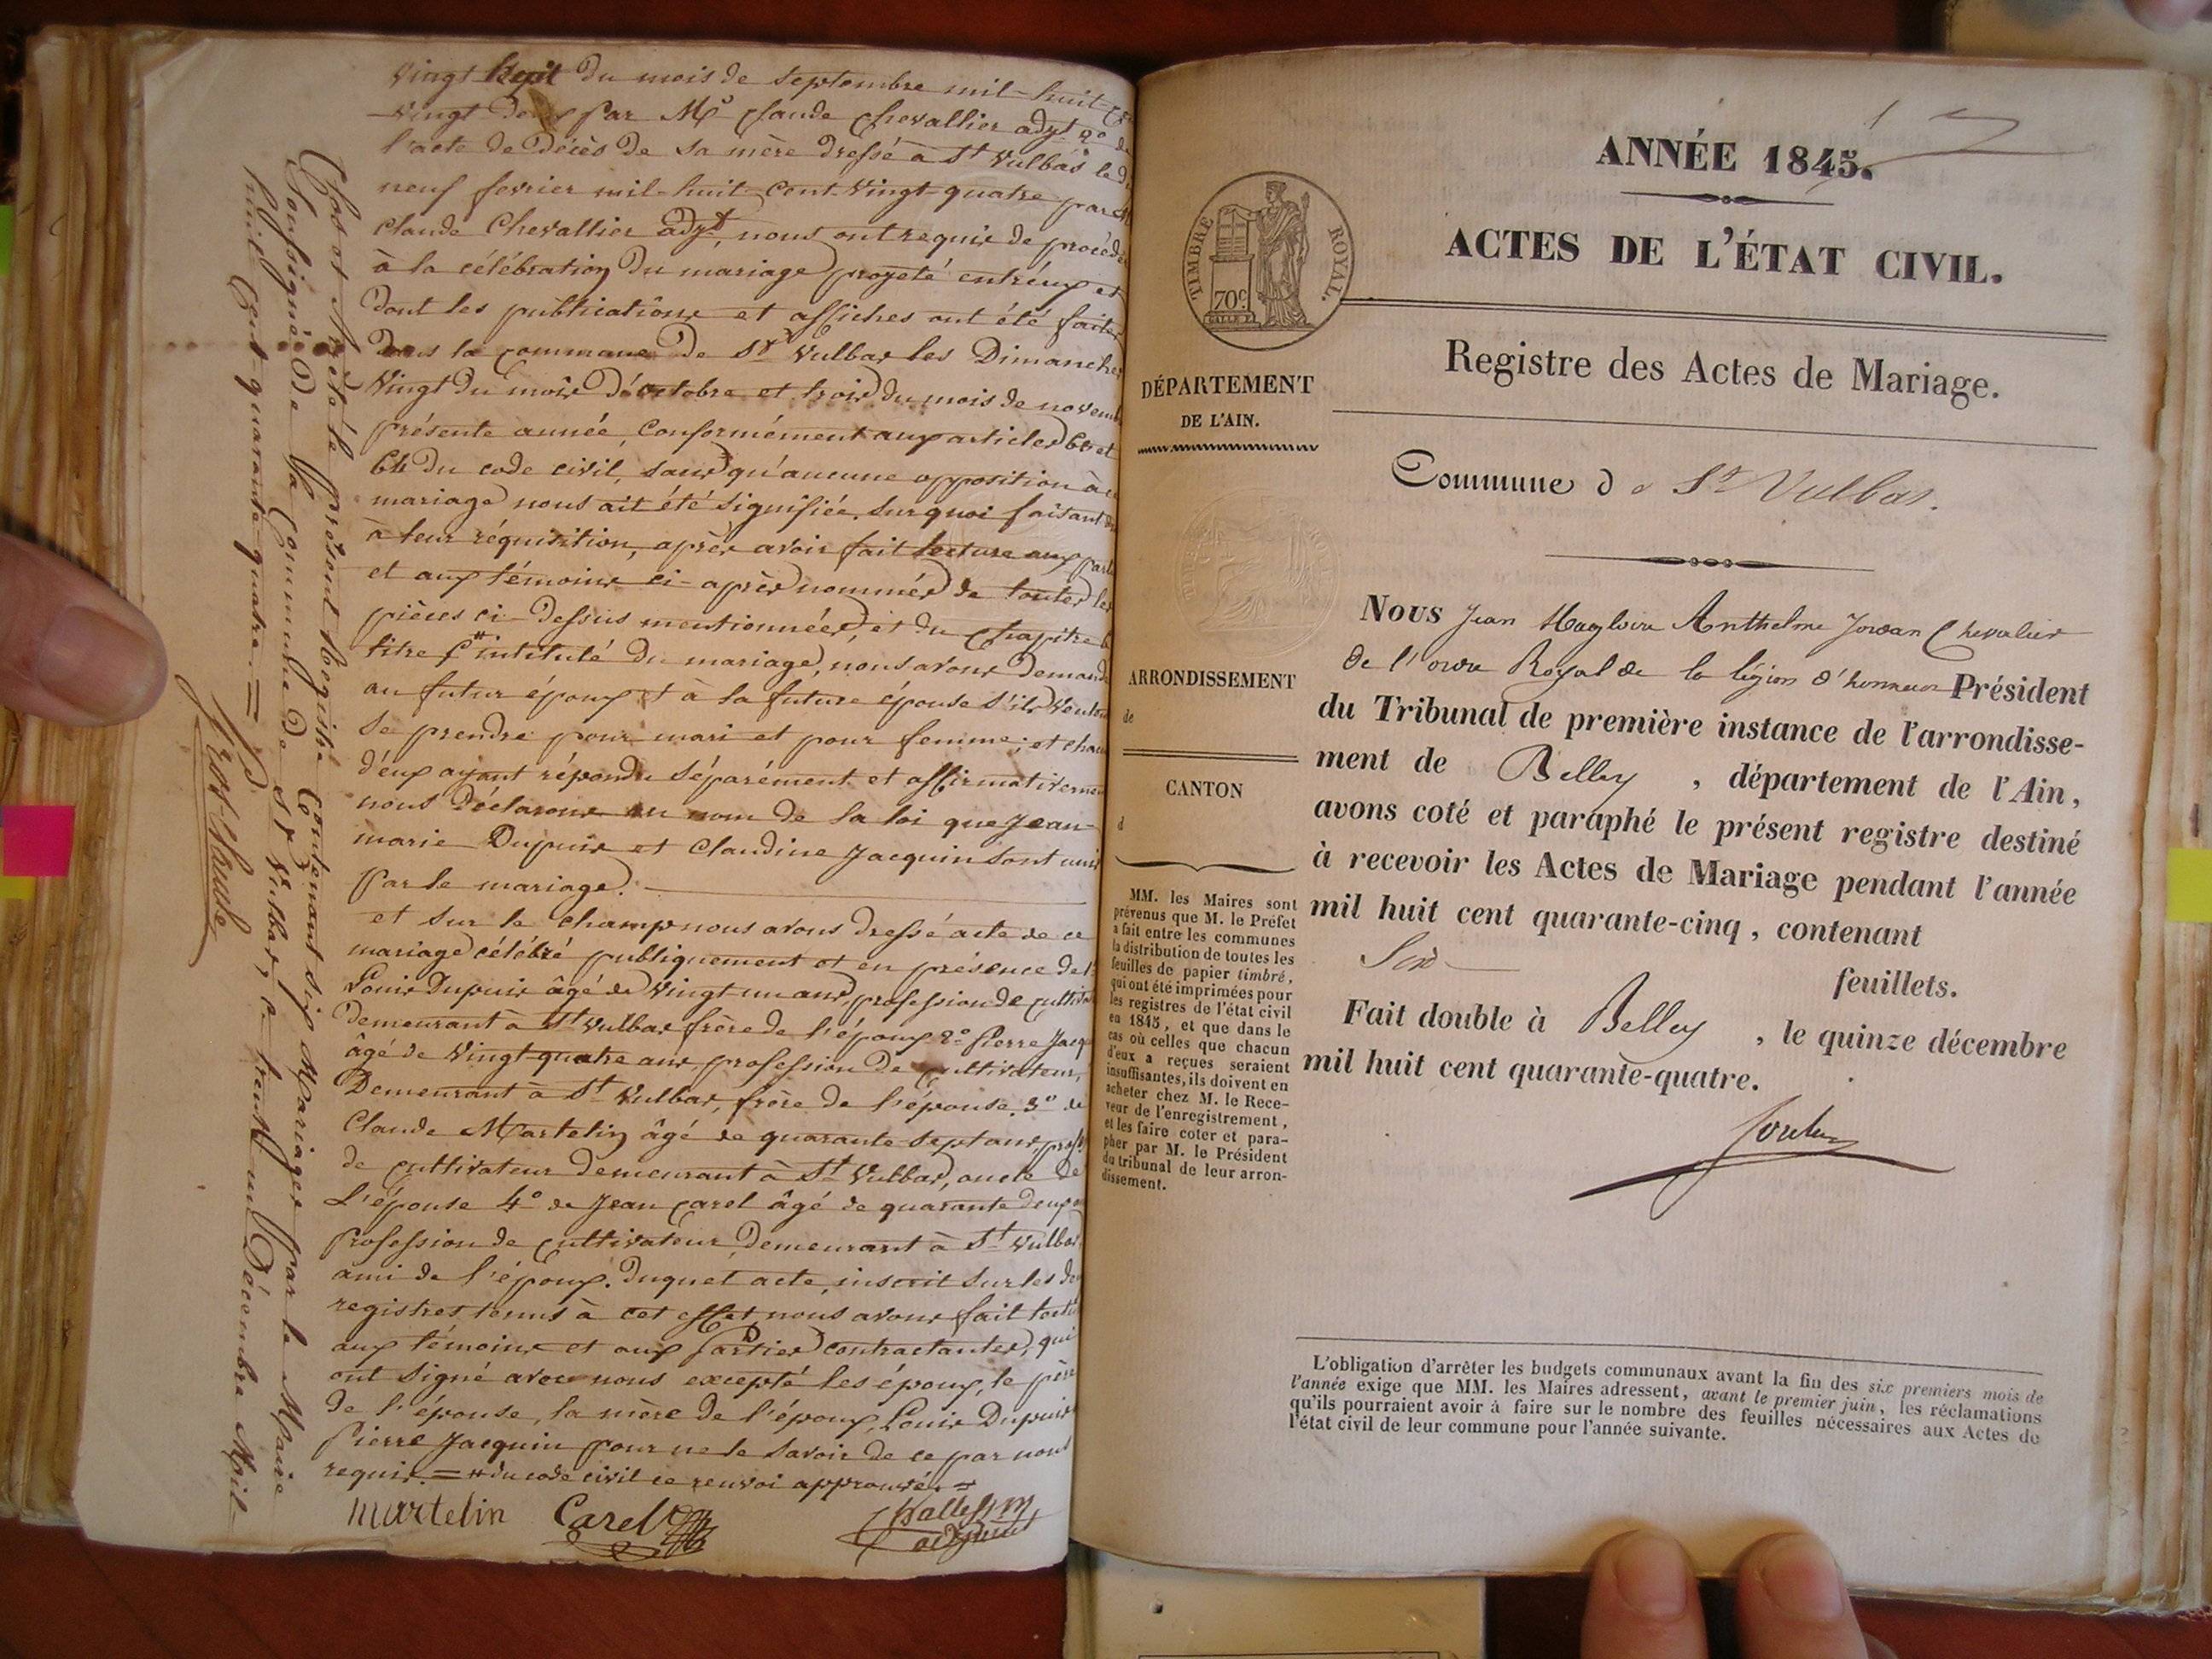 Vingt Sept Du mois de septembre mil-huit-
Vingt Deux Par Mr Claude Chevallier adjt 2°
l'acte de Décès de sa mère Dressé à St Vulbas le
neuf fevrier mil-huit-cent-vingt-quatre par
Claude Chevallier adjt, nous ont requis de procéde
à la célébration Du mariage projeté entr'eux et
Dont les publications et affiches ont été faites
Dans la commune De St Vulbas les Dimanches
Vingt Du mois D'octobre et trois du mois de novem
présente année, Conformément aux articles 63 et
64 Du code civil, sans qu'aucune opposition à
mariage nous ait été signifiée. Sur quoi faisant
à leur réquisition, après avoir fait lecture aux part
et aux témoins ci-après nommés de toutes les
pièces ci-Dessus mentionnées, et du Chapitre
titre 5 # intitulé Du mariage, nous avons Demand
au futur époux et à la future épouse s'ils Veulen
se prendre pour mari et pour femme; et chac
d'eux ayant répondu séparément et affirmativemen
nous Déclarons au nom de la loi que Jean-
marie Dupuis et Claudine Jacquin sont unis
Par le mariage.
et sur le champ nous avons Dressé acte de ce
mariage célébré publiquement et en présence de
Louis Dupuis âgé de Vingt un ans, profession de cultiva
Demeurant à St Vulbas frère de l'époux 2° Pierre Jacq
âgé de Vingt-quatre ans, profession De cultivateur,
Demeurant à St Vulbas, frère de l'épouse. 3° de
Claude Martelin âgé de quarante-sept ans, prof
de cultivateur Demeurant à St Vulbas, oncle De
L'épouse 4° de Jean Carel âgé de quarante Deux
Profession de cultivateur Demeurant à St Vulbas
ami de l'époux. Duquel acte, inscrit sur les De
registres tenus à cet effet nous avons fait lectu
aux témoins et aux Parties contractantes, qui
ont signé avec nous excepté les époux, le père
De l'épouse, la mère de l'époux, Louis Dupuis
Pierre Jacquin pour ne le savoir de ce par nous
requis. = # du code civil ce renvoi approuvé. =
Martelin Carel adjoint
Clos et Arrêté le présent Registre Contenant six Mariages par le Maire
Soussigné De la Commune De St Vulbas, ce trente un Décembre Mil-
huit Cent quarante quatre. =
ANNÉE 1845.
ACTES DE L'ÉTAT CIVIL.
TIMBRE ROYAL.
70c
Registre des Actes de Mariage.
DÉPARTEMENT
DE L'AIN.
Commune de St Vulbas.
ARRONDISSEMENT
de
CANTON
d
MM. les Maires sont
prévenus que M. le Préfet
a fait entre les communes
la distribution de toutes les
feuilles de papier timbré,
qui ont été imprimées pour
les registres de l'état civil
en 1845, et que dans le
cas où celles que chacun
d'eux a reçues seraient
insuffisantes, ils doivent en
acheter chez M. le Rece-
veur de l'enregistrement,
et les faire coter et para-
pher par M. le Président
du tribunal de leur arron-
dissement.
Nous Jean Magloire Anthelme Jordan Chevalier
de l'ordre Royal de la légion d'honneur Président
du Tribunal de première instance de l'arrondisse-
ment de Belley, département de l'Ain,
avons coté et paraphé le présent registre destiné
à recevoir les Actes de Mariage pendant l'année
mil huit cent quarante-cinq, contenant
Six feuillets.
Fait double à Belley, le quinze décembre
mil huit cent quarante-quatre.
L'obligation d'arrêter les budgets communaux avant la fin des six premiers mois de
l'année exige que MM. les Maires adressent, avant le premier juin, les réclamations
qu'ils pourraient avoir à faire sur le nombre des feuilles nécessaires aux Actes de
l'état civil de leur commune pour l'année suivante.